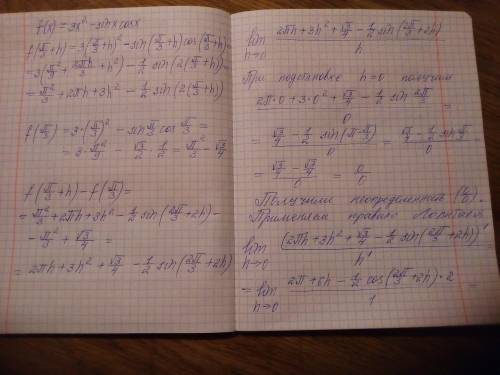 f(x) = 3x² - sinx cosx
f(π/3 + h) = 3(π/3 + h)² - sin(π/3 + h) cos(π/3 + h) =
= 3(π²/9 + 2πh/3 + h²) - 1/2 sin(2(π/3 + h)) =
= π²/3 + 2πh + 3h² - 1/2 sin(2(π/3 + h))
f(π/3) = 3·(π/3)² - sin π/3 cos π/3 =
= 3·π²/9 - √3/2 · 1/2 = π²/3 - √3/4
f(π/3 + h) - f(π/3) =
= π²/3 + 2πh + 3h² - 1/2 sin(2π/3 + 2h) -
- π²/3 + √3/4 =
= 2πh + 3h² + √3/4 - 1/2 sin(2π/3 + 2h)
lim h→0 (2πh + 3h² + √3/4 - 1/2 sin(2π/3 + 2h))/h
При подстановке h=0 получим
(2π·0 + 3·0² + √3/4 - 1/2 sin 2π/3)/0 =
= (√3/4 - 1/2 sin(π - π/3))/0 = (√3/4 - 1/2 sin π/3)/0 =
= (√3/4 - √3/4)/0 = 0/0
Получили неопределенность (0/0).
Применяем правило Лопиталя
lim h→0 (2πh + 3h² + √3/4 - 1/2 sin(2π/3 + 2h))'/h'
= lim h→0 (2π + 6h - 1/2 cos(2π/3 + 2h)·2)/1 =